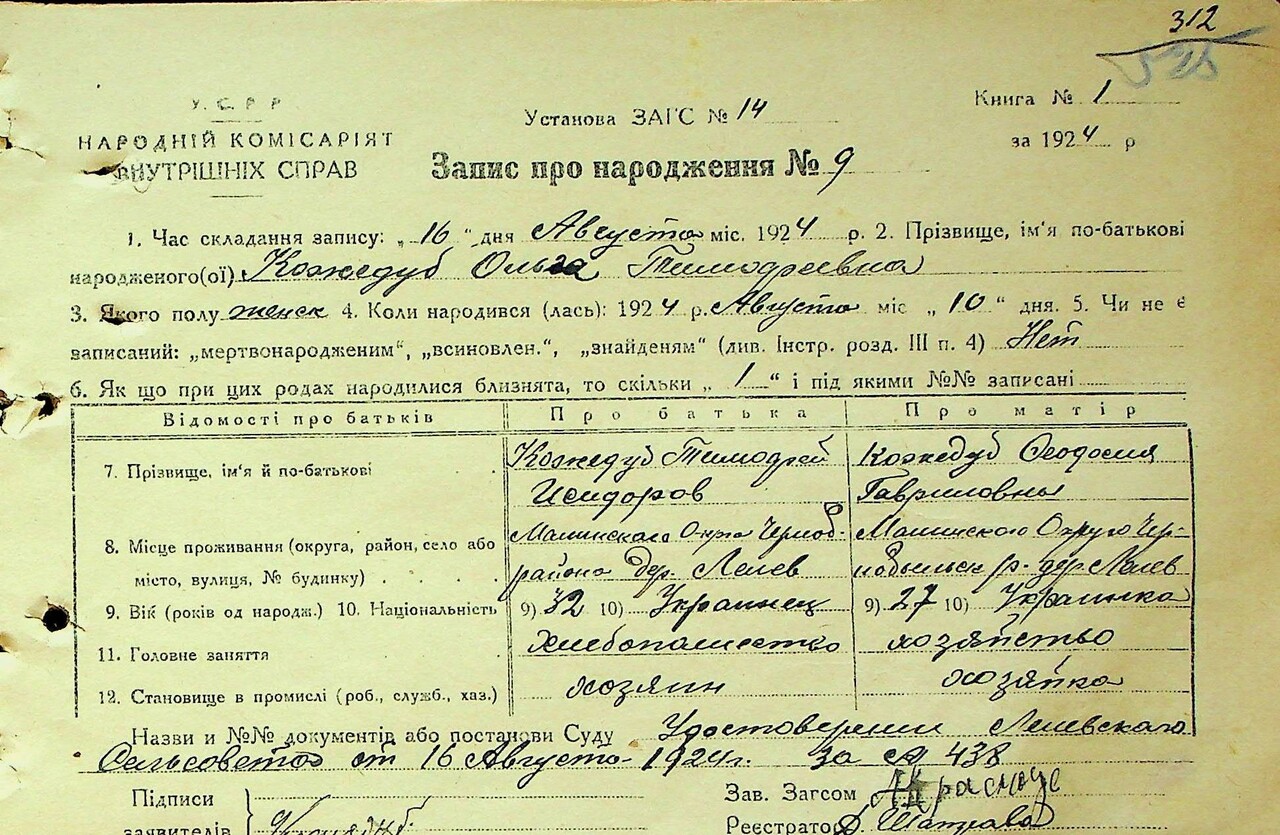 312
У.С.Р.Р.
НАРОДНІЙ КОМІСАРІЯТ
ВНУТРІШНІХ СПРАВ
Установа ЗАГС № 14
Книга № 1
за 1924 р
Запис про народження № 9
1. Час складання запису: „16“ дня Августа міс. 1924 р. 2. Прізвище, ім'я по-батькові
народженого(ої) Кожедуб Ольга Тимофеевна
3. Якого полу женск 4. Коли народився (лась): 1924 р. Августа міс „10“ дня. 5. Чи не є
записаний: „мертвонародженим“, „всиновлен.“, „знайденям“ (див. Інстр. розд. III п. 4) Нет
6. Як що при цих родах народилися близнята, то скільки „1“ і під якими №№ записані
Відомості про батьків Про батька Про матір
7. Прізвище, ім'я й по-батькові Кожедуб Тимофей Кожедуб Феодосия
Исидоров Гавриловны
8. Місце проживання (округа, район, село або Малинскага Окра Черноб. Малинского Округа Чер-
місто, вулиця, № будинку) района дер. Лелев нобыльск р. дер Лелев
9. Вік (років од народж.) 10. Національність 9) 32 10) Украинец 9) 27 10) Украинка
11. Головне заняття Хлебопашество хозяйство
12. Становище в промислі (роб., служб., хаз.) хозяин хозяйка
Назви и №№ документів або постанови Суду Удостоверении Лелевского
Сельсовета от 16 Августа 1924г. за № 438
Підписи
заявителів
Зав. Загсом
Реєстратор